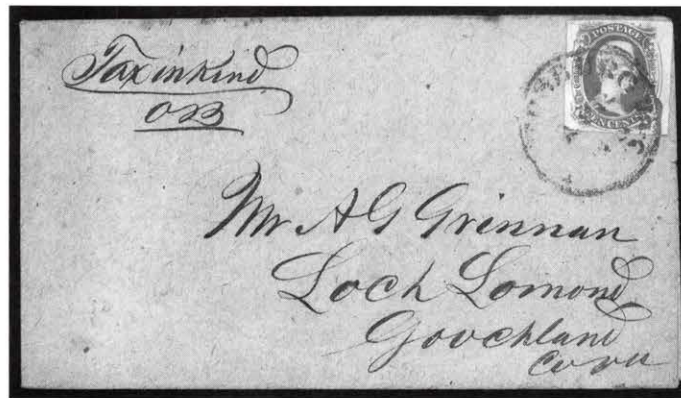 Tax in kind
OB
POSTAGE
TEN CENTS
Mr A G Grinnan
Loch Lomond
Goochland
Co Va